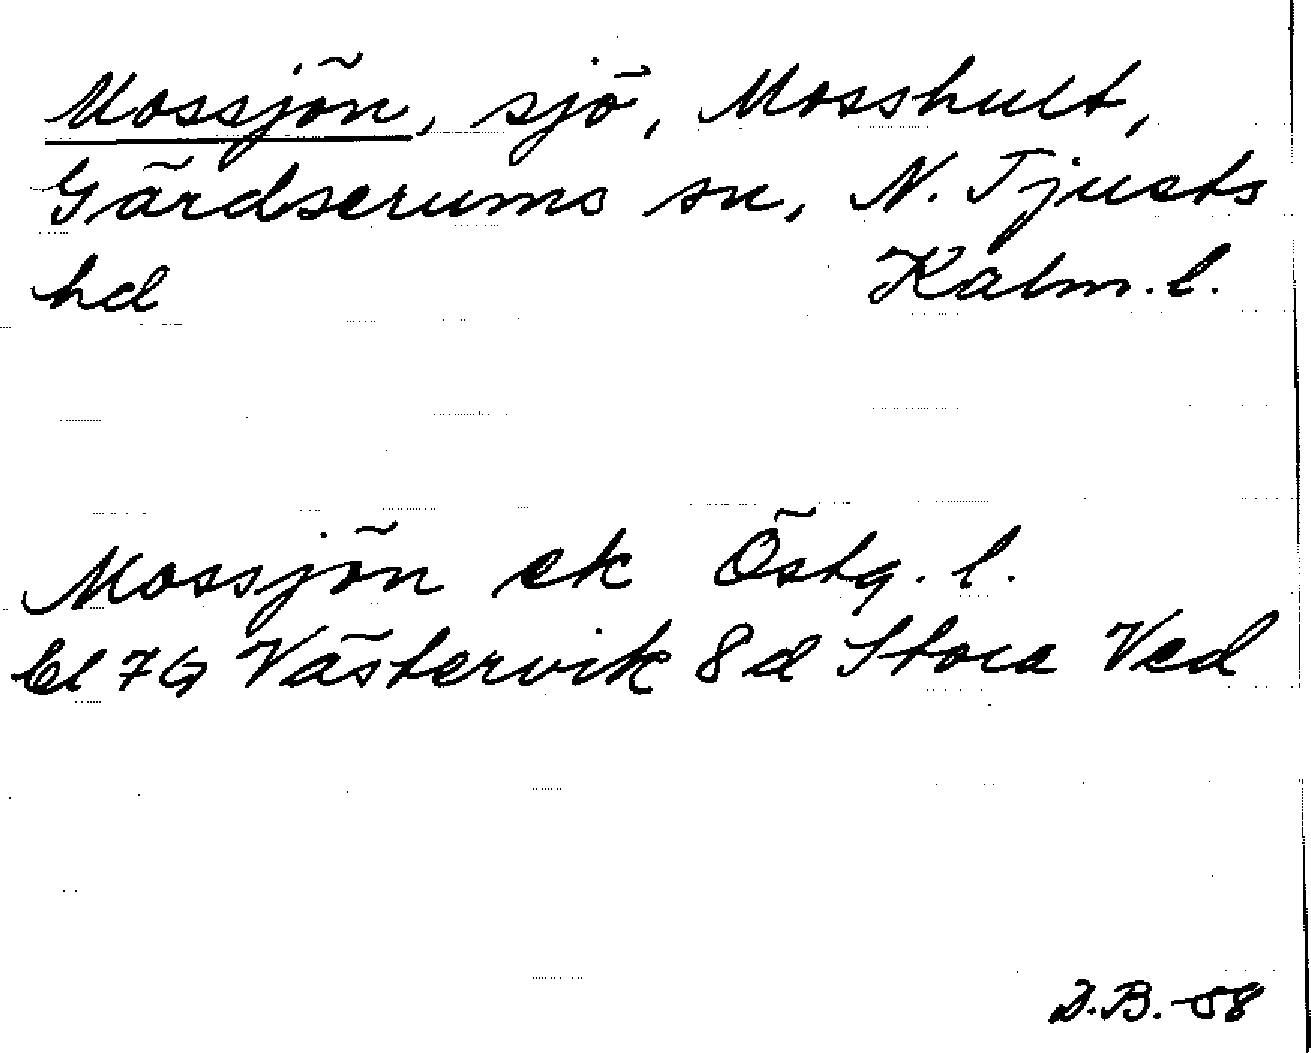 Mossjön, sjö, Mosshult,
Gärdserums sn, N. Tjusts
hd Kalm. l.
Mossjön ek Östg. l.
bl 7G Västervik 8d Stora Ved
D.B.-58